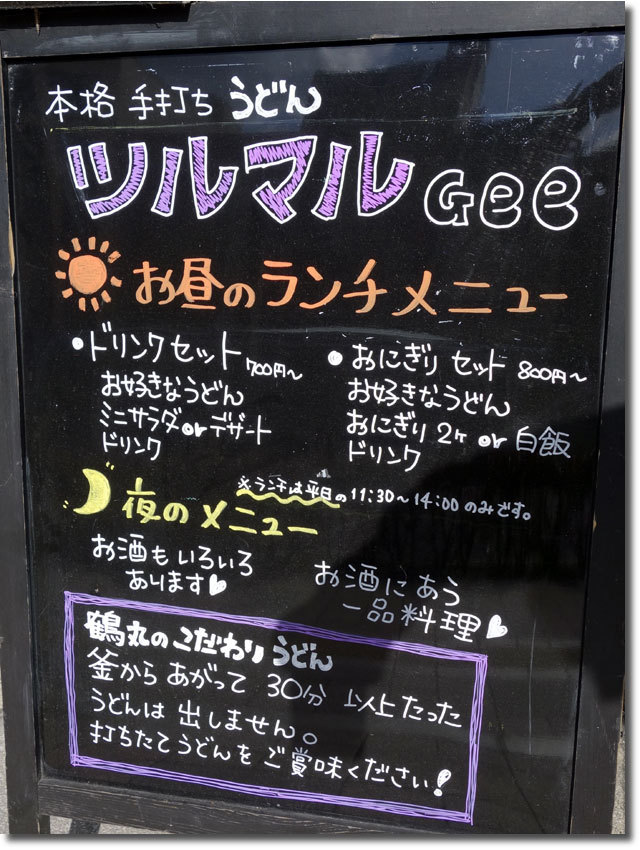 本格 手打ち うどん
ツルマル Gee
お昼のランチメニュー
・ドリンクセット 700円～
お好きなうどん
ミニサラダ or デザート
ドリンク
・おにぎり セット 800円～
お好きなうどん
おにぎり 2ヶ or 白飯
ドリンク
※ランチは平日の 11:30～14:00 のみです。
夜のメニュー
お酒もいろいろ
あります♥
お酒にあう
一品料理♥
鶴丸のこだわり うどん
釜から あがって 30分 以上たった
うどんは 出しません。
打ちたてうどんを ご賞味ください!